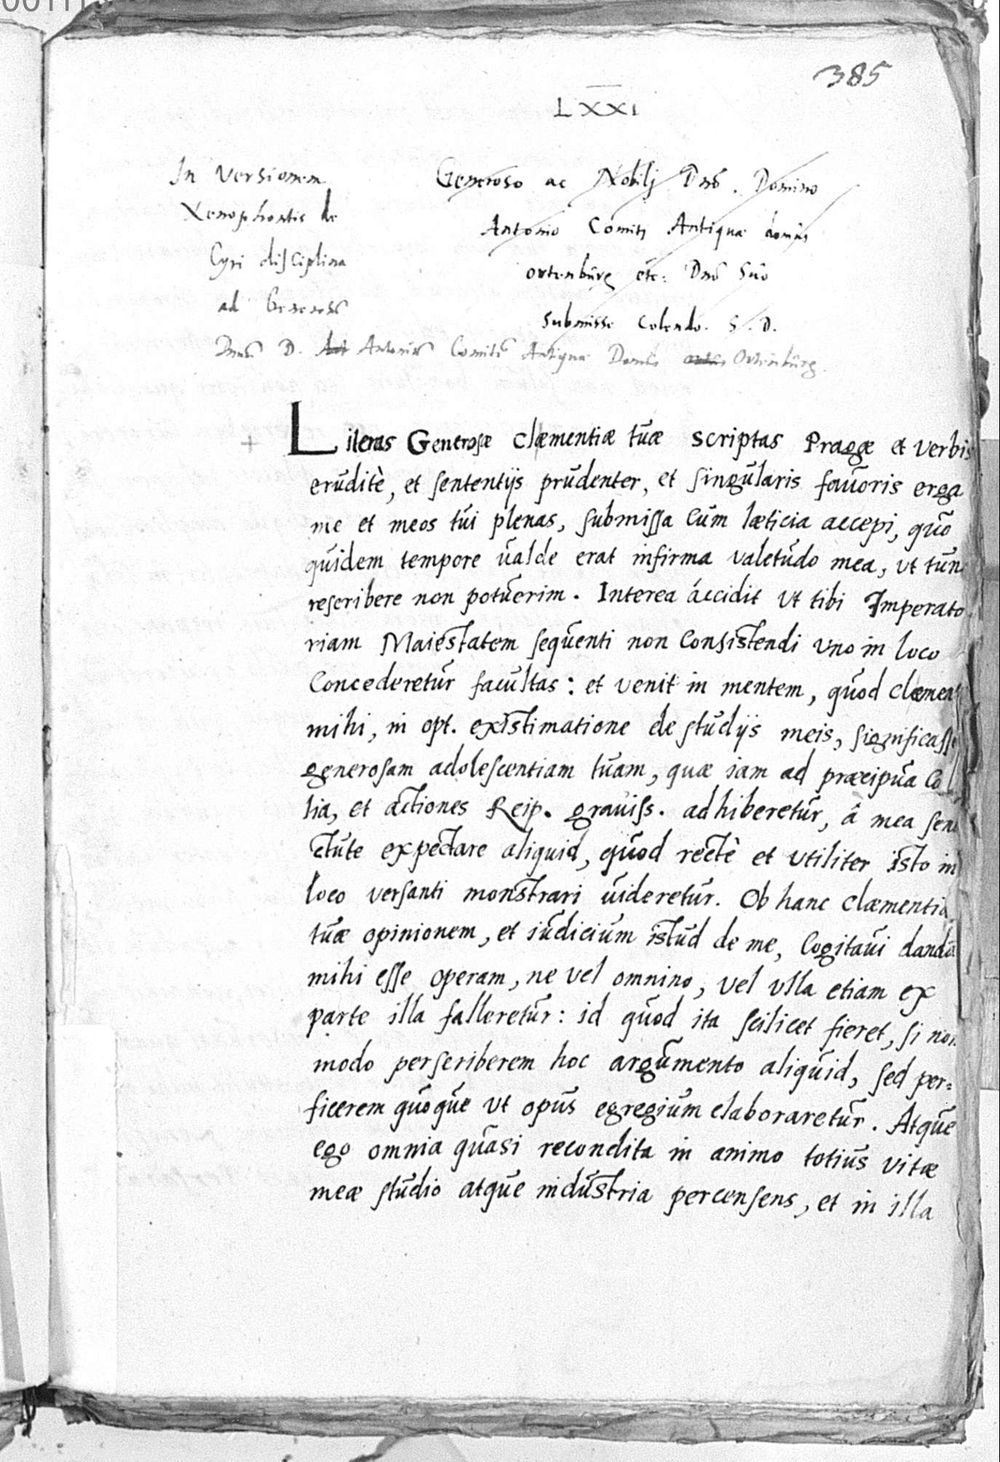 385
LXXI
In Versionem
Xenophontis de
Cyri disciplina
ad Generosū
Dnū D. Antoniū Comitē Antiquæ Domus Ortenburg.
Generoso ac Nobili Dnō. Domino
Antonio Comiti Antiquæ domus
Ortenbûrg etc: Dnō Suo
Submisse Colendo. S. D.
Literas Generosæ clæmentiæ tuæ scriptas Pragæ et verbis
erŭditè, et sententijs prŭdenter, et singŭlaris faŭoris erga
me et meos tŭi plenas, submissa cŭm læticia accepi, quo
quidem tempore ŭalde erat infirma valetŭdo mea, vt tŭnc
rescribere non potŭerim. Interea áccidit vt tibi Imperato
riam Maiestatem sequenti non Consistendi vno in loco
Concederetŭr facŭltas: et venit in mentem, quod clæmen
mihi, in opt. existimatione de stŭdijs meis, significasse
generosam adolescentiam tuam, quæ iam ad præcipŭa Co
lia, et actiones Reip. grauiss. adhiberetŭr, â mea sene
ctŭte expectare aliquid, quod rectè et vtiliter isto in
loco versanti monstrari ŭideretŭr. Ob hanc clæmentiæ
tuæ opinionem, et iŭdiciŭm istŭd de me, Cogitaŭi dandā
mihi esse operam, ne vel omnino, vel vlla etiam ex
parte illa falleretŭr: id quod ita scilicet fieret, si non
modo perscriberem hoc argŭmento aliqŭid, sed per=
ficerem qŭoqŭe vt opŭs egregiŭm elaboraretŭr. Atqŭe
ego omnia qŭasi recondita in animo totiŭs vitæ
meæ stŭdio atqŭe indŭstria percensens, et in illa